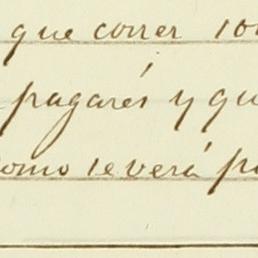 que correr
pagarés y qu
como se verá p